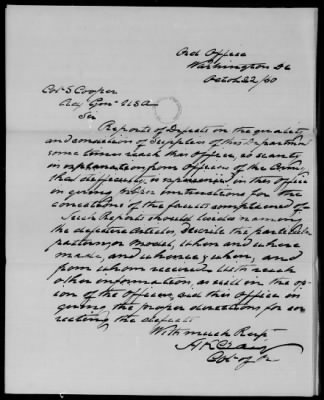 Ord Office
Washington Dc
Octob. 22/60
Col S Cooper
Adj Genl USA
Sir
Reports of Defects in the quality
and condition of Supplies of this Department
some times reach this Office, so scanty
in explanation from officers of the Army
that difficulty is experienced in this Office
in giving precise instructions for the
correction of the faults complained of
Such Reports should besides naming
the defective Articles, describe the particular
pattern or Model, when and where
made, and whence, when, and
from whom received with such
other information, as will in the opin
ion of the Officer, aid this Office in
giving the proper directions for cor
recting the defects
With much Resp
H K Craig
Col of Or